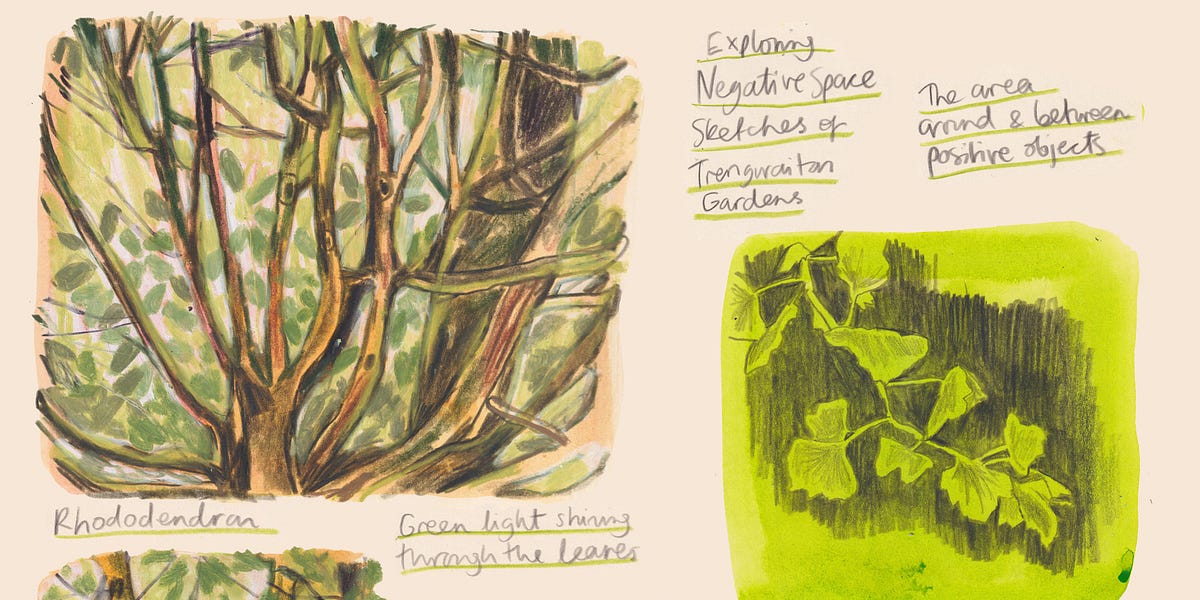 Exploring
Negative Space
Sketches of
Trengwainton
Gardens
The area
around & between
positive objects
Rhododendron
Green light shining
through the leaves